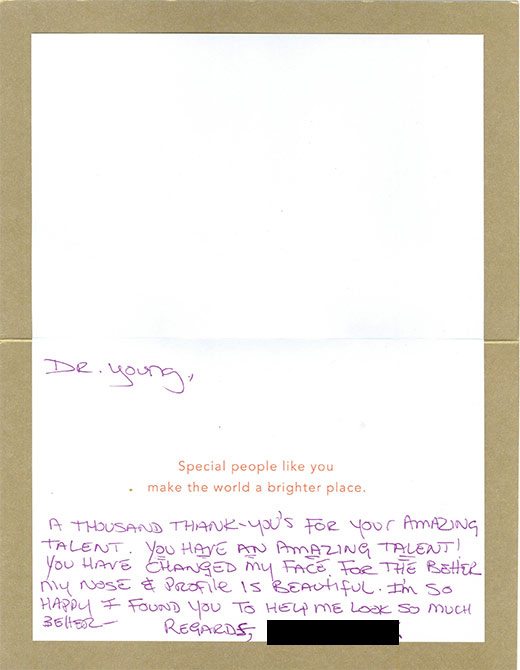 DR. Young,
Special people like you
make the world a brighter place.
A THOUSAND THANK-YOU'S FOR YOUR AMAZING
TALENT. YOU HAVE AN AMAZING TALENT!
YOU HAVE CHANGED MY FACE FOR THE BETTER
MY NOSE & PROFILE IS BEAUTIFUL. I'M SO
HAPPY I FOUND YOU TO HELP ME LOOK SO MUCH
BETTER—
REGARDS,